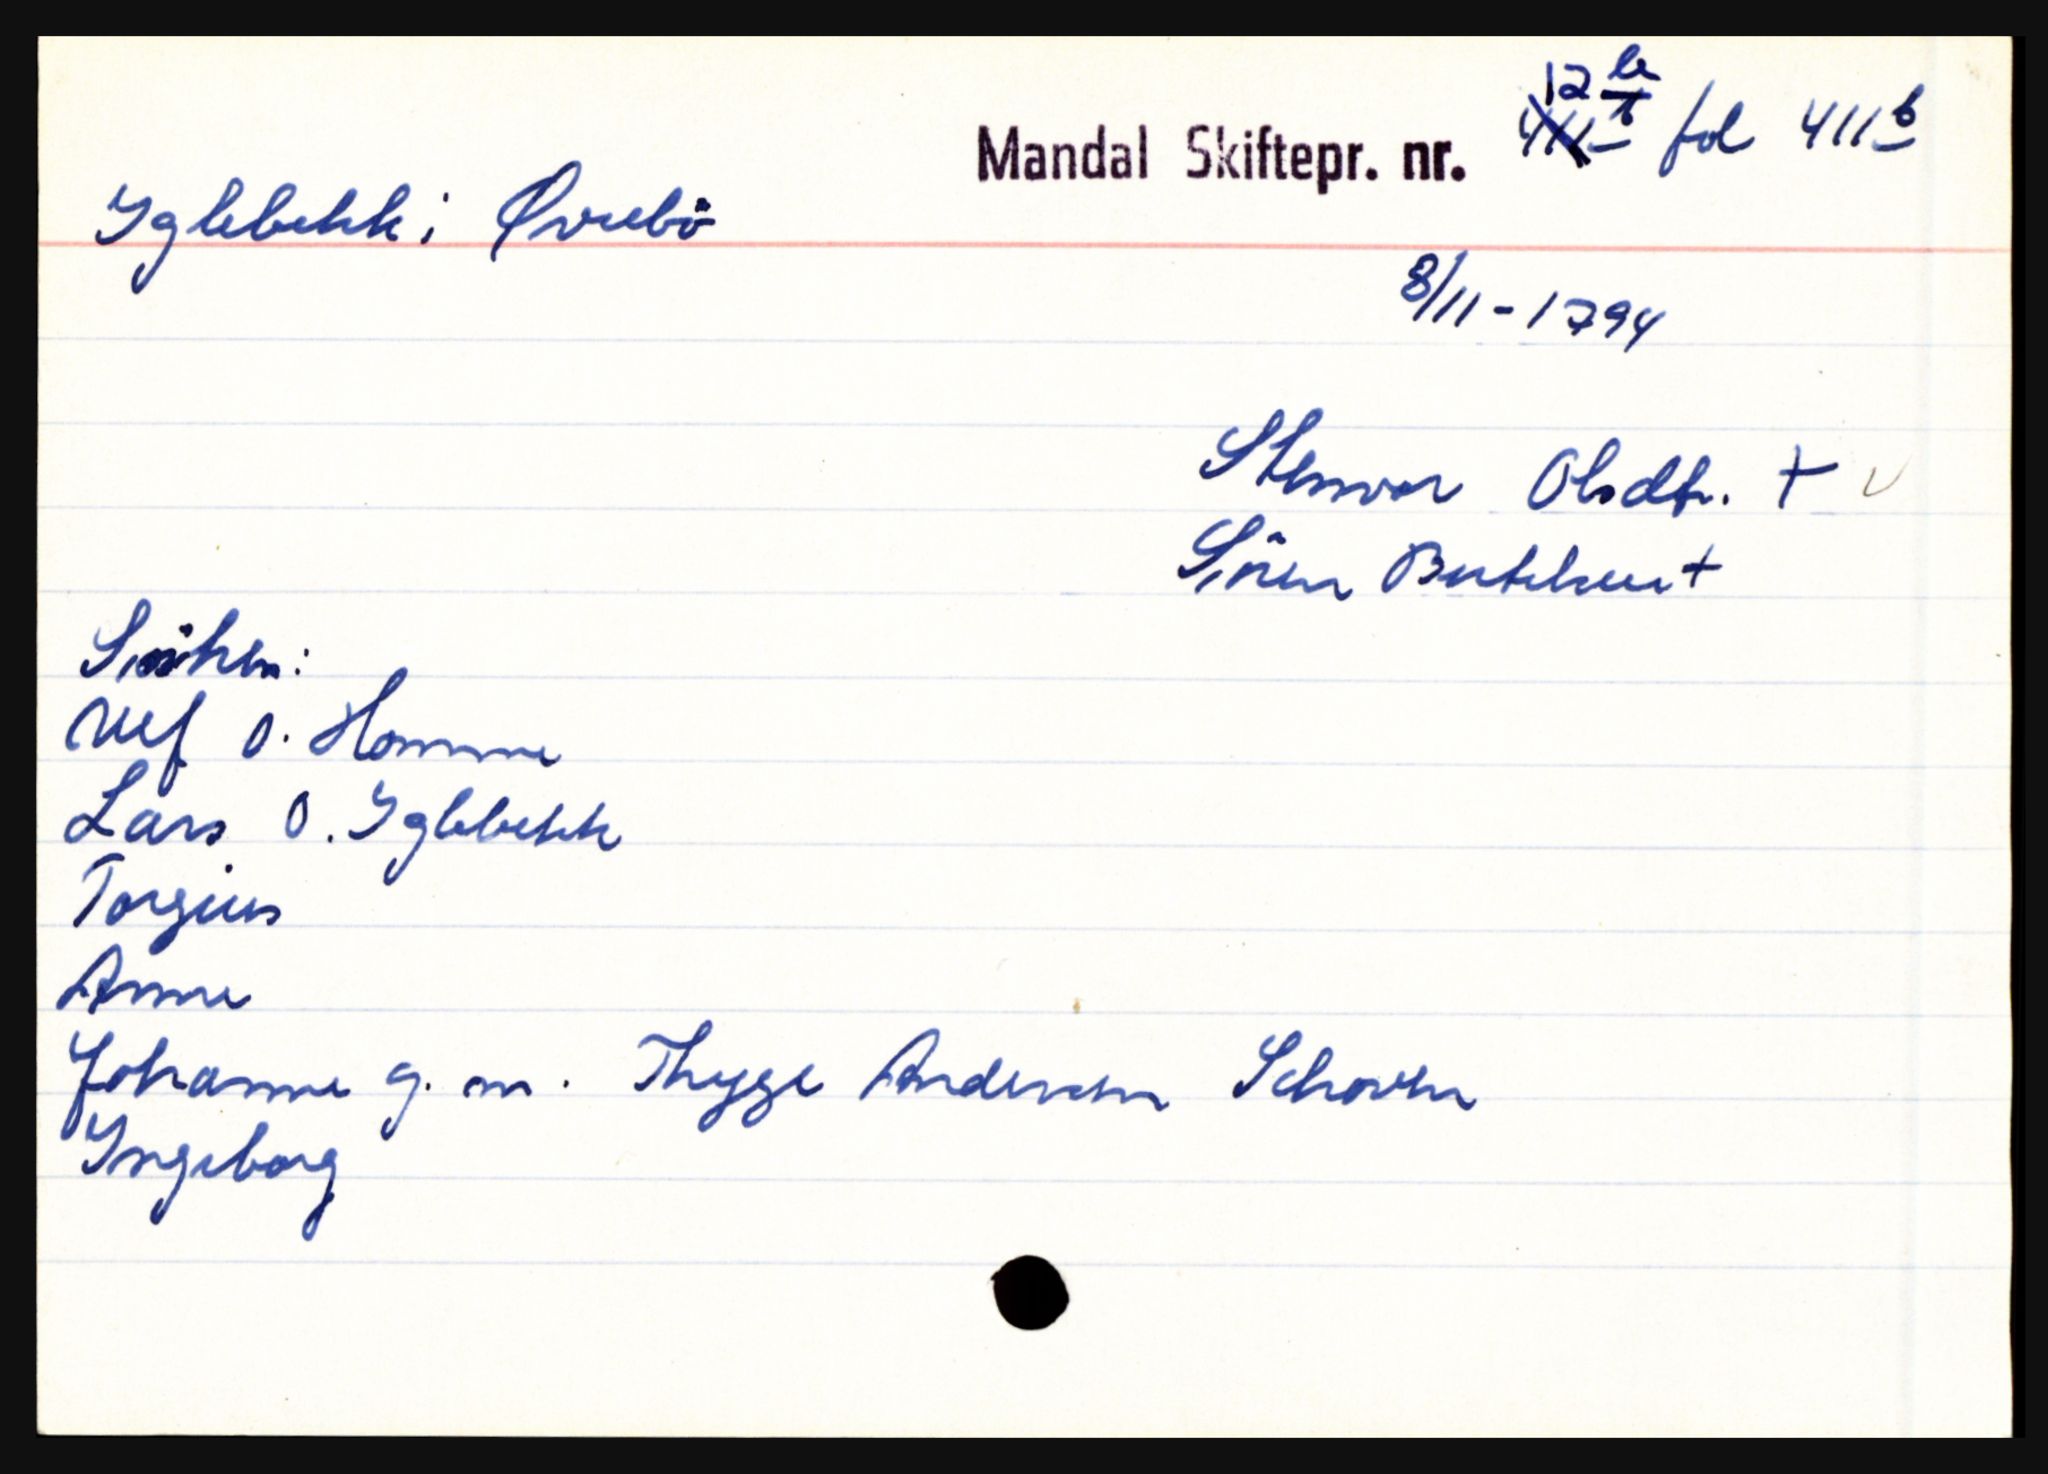 Mandal Skiftepr. nr. 12 fol 411b
Iglebekk i Øvrebö
8/11-1794
Stenvor Olsdtr. +
Sören Bertelsen +
Sösken:
Ulf O. Homme
Lars O. Iglebekk
Torgius
Anne
Johanne g. m. Thygge Andersen Schoven
Ingeborg